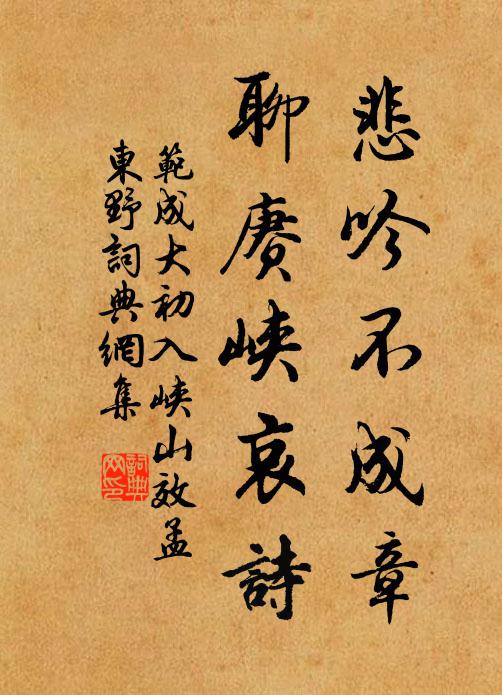 悲吟不成章
聊賡峽哀詩
範成大初入峽山效孟
東野詞典網集
詞典
网印